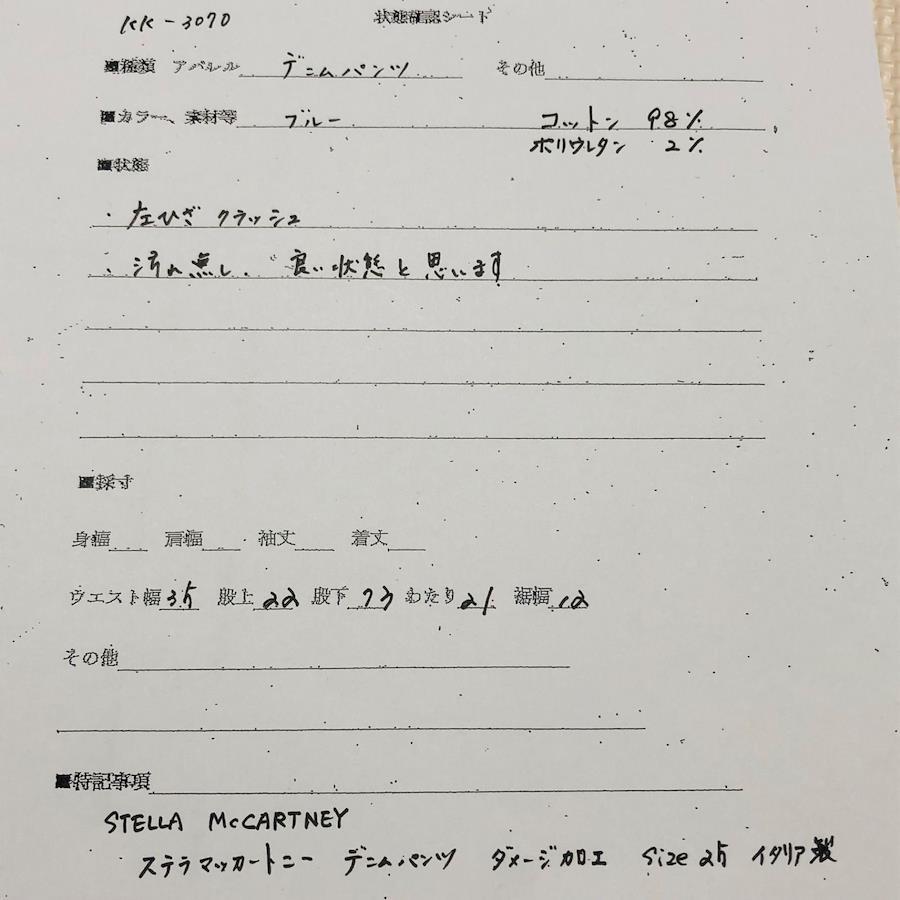 KK-3070
状態確認シート
■種類 アパレル デニムパンツ その他
■カラー、素材等 ブルー コットン 98%
ポリウレタン 2%
■状態
・左ひざ クラッシュ
・汚れ無し、良い状態と思います
■採寸
身幅 肩幅 袖丈 着丈
ウエスト幅 35 股上 22 股下 73 わたり 21 裾幅 12
その他
■特記事項
STELLA McCARTNEY
ステラマッカートニー デニムパンツ ダメージ加工 Size 25 イタリア製